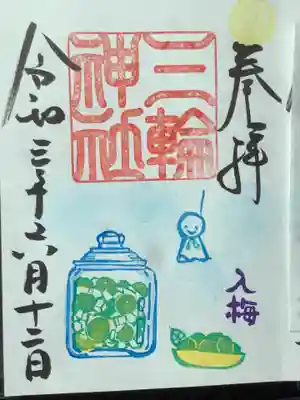 奉拝
三輪
神社
入梅
令和三年六月十二日